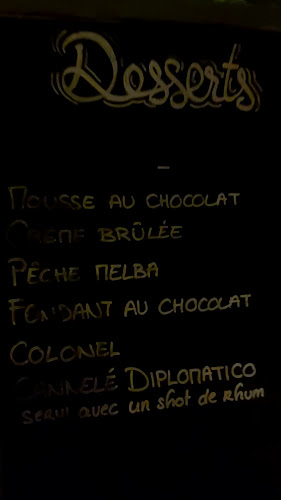 Desserts
MOUSSE AU CHOCOLAT
CRÈME BRÛLÉE
PÊCHE MELBA
FONDANT AU CHOCOLAT
COLONEL
CANNELÉ DIPLOMATICO
servi avec un shot de rhum